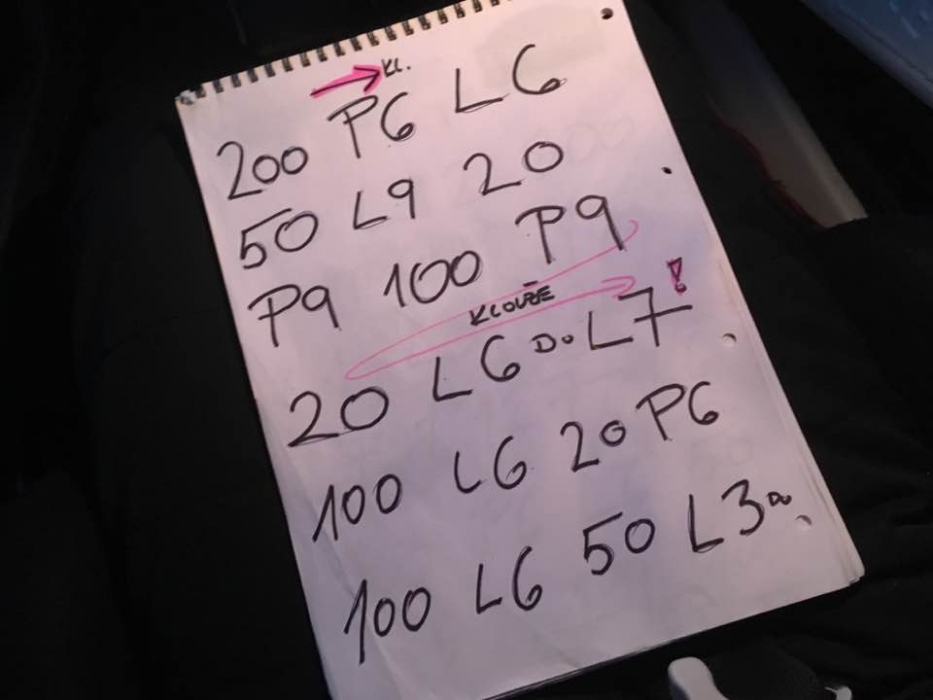 KL.
200 P6 L6
50 L9 20
P9 100 P9
KLOUŽE !
20 L6 DO L7
100 L6 20 P6
100 L6 50 L3 DO